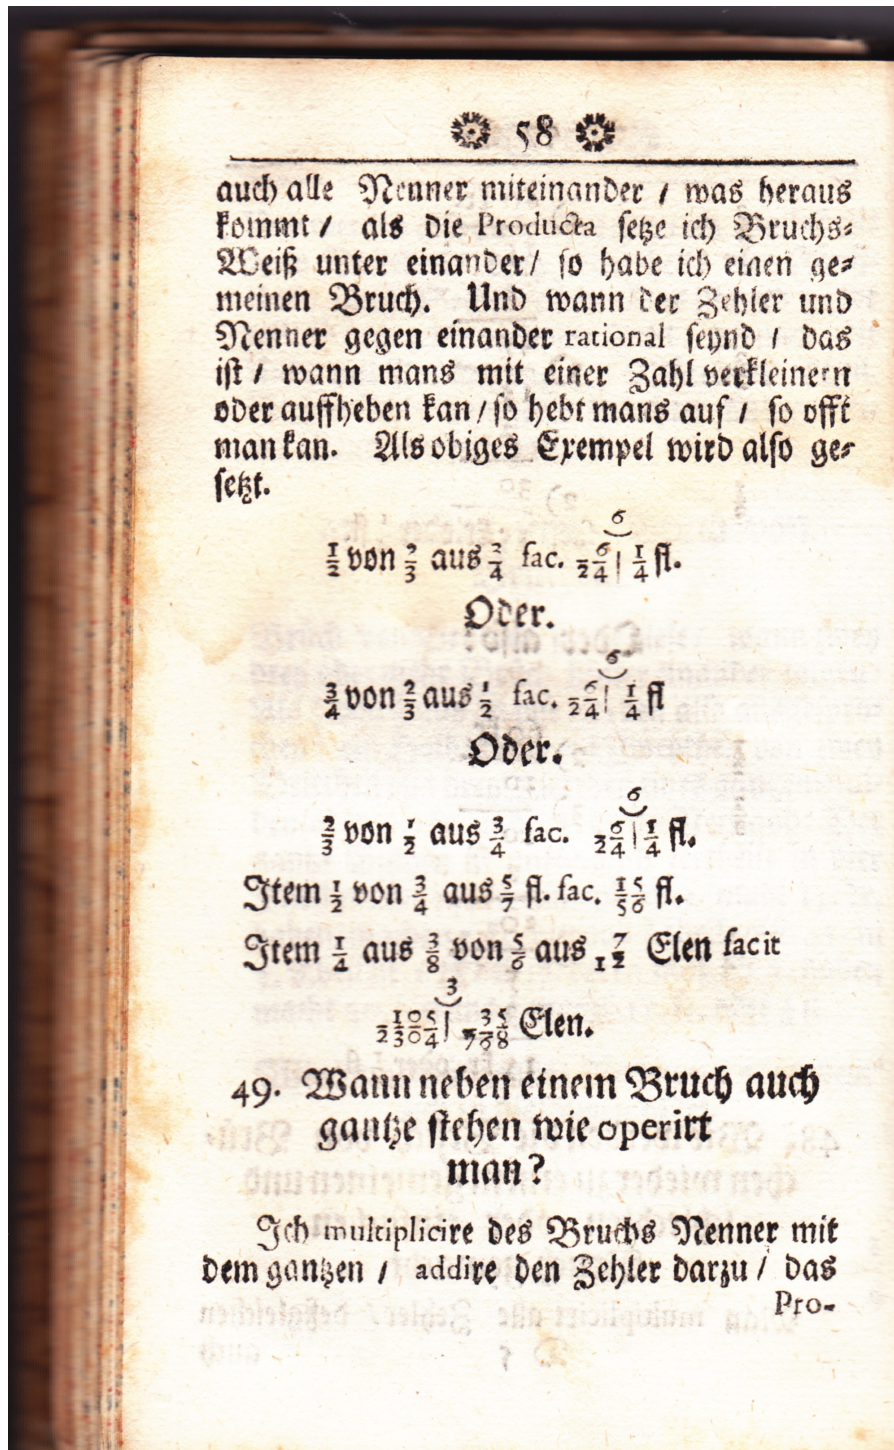 58
auch alle Nenner miteinander / was heraus
kommt / als die Producta setze ich Bruchs-
Weiß unter einander / so habe ich einen ge-
meinen Bruch. Und wann der Zehler und
Nenner gegen einander rational seynd / das
ist / wann mans mit einer Zahl verkleinern
oder auffheben kan / so hebt mans auf / so offt
man kan. Als obiges Exempel wird also ge-
setzt.
6
1/2 von 2/3 aus 3/4 fac. 6/24 | 1/4 fl.
Oder.
6
3/4 von 2/3 aus 1/2 fac. 6/24 | 1/4 fl
Oder.
6
2/3 von 1/2 aus 3/4 fac. 6/24 | 1/4 fl.
Item 1/2 von 3/4 aus 5/7 fl. fac. 15/56 fl.
Item 1/4 aus 3/8 von 5/6 aus 7/12 Elen facit
3
105/2304 | 35/768 Elen.
49. Wann neben einem Bruch auch
gantze stehen wie operirt
man?
Ich multiplicire des Bruchs Nenner mit
dem gantzen / addire den Zehler darzu / das
Pro-